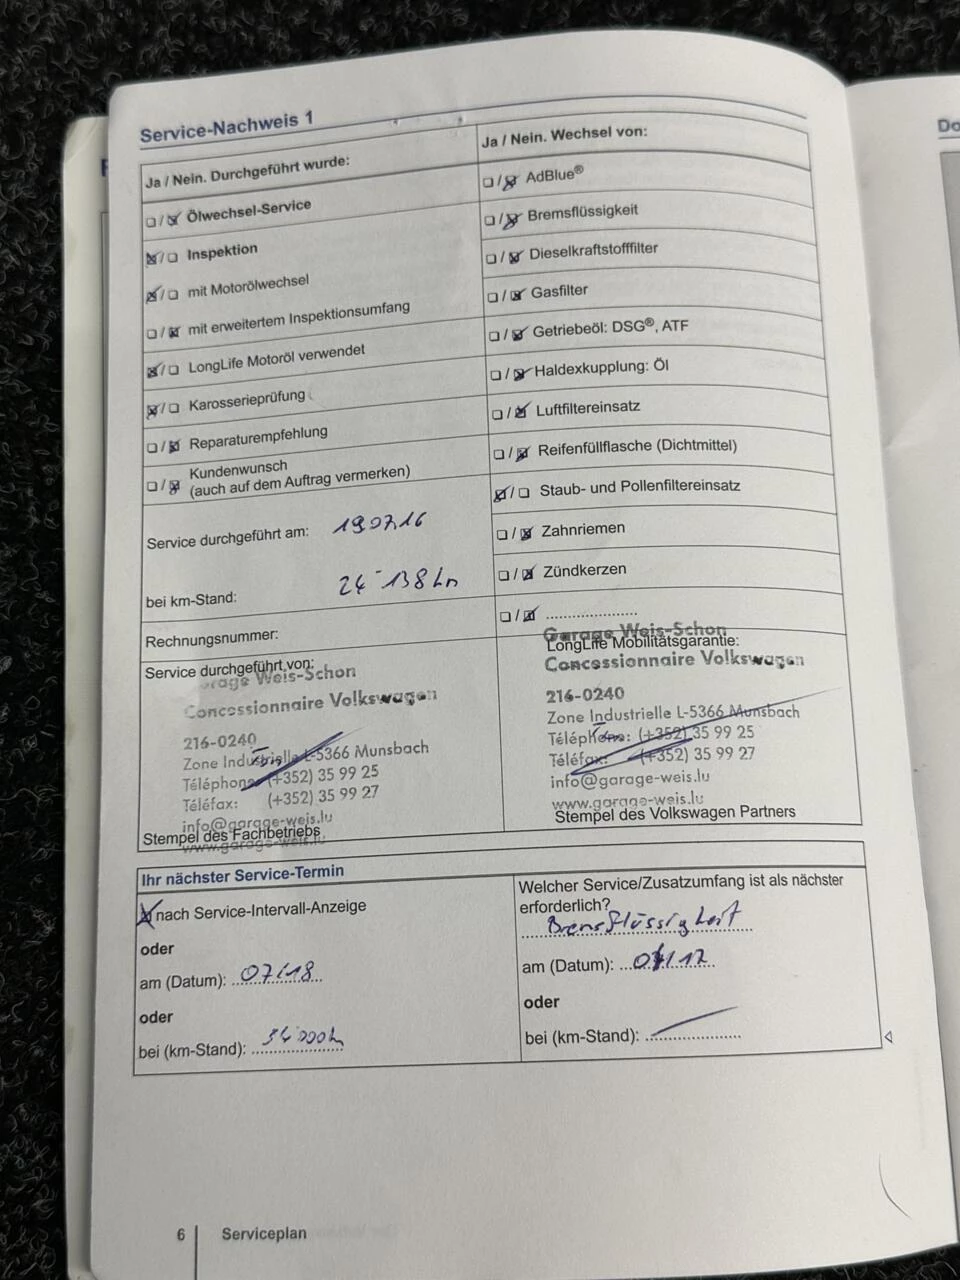 Service-Nachweis 1
Ja / Nein. Durchgeführt wurde:
☐/☒ Ölwechsel-Service
☒/☐ Inspektion
☒/☐ mit Motorölwechsel
☐/☒ mit erweitertem Inspektionsumfang
☒/☐ LongLife Motoröl verwendet
☒/☐ Karosserieprüfung
☐/☒ Reparaturempfehlung
☐/☒ Kundenwunsch
(auch auf dem Auftrag vermerken)
Service durchgeführt am: 19.07.16
bei km-Stand: 24 138 km
Rechnungsnummer:
Service durchgeführt von:
Garage Weis-Schon
Concessionnaire Volkswagen
216-0240
Zone Industrielle L-5366 Munsbach
Téléphone: (+352) 35 99 25
Téléfax: (+352) 35 99 27
info@garage-weis.lu
Stempel des Fachbetriebs
www.garage-weis.lu
Ja / Nein. Wechsel von:
☐/☒ AdBlue®
☐/☒ Bremsflüssigkeit
☐/☒ Dieselkraftstofffilter
☐/☒ Gasfilter
☐/☒ Getriebeöl: DSG®, ATF
☐/☒ Haldexkupplung: Öl
☐/☒ Luftfiltereinsatz
☐/☒ Reifenfüllflasche (Dichtmittel)
☒/☐ Staub- und Pollenfiltereinsatz
☐/☒ Zahnriemen
☐/☒ Zündkerzen
☐/☒ .....................
Garage Weis-Schon
LongLife Mobilitätsgarantie:
Concessionnaire Volkswagen
216-0240
Zone Industrielle L-5366 Munsbach
Téléphone: (+352) 35 99 25
Téléfax: (+352) 35 99 27
info@garage-weis.lu
www.garage-weis.lu
Stempel des Volkswagen Partners
Ihr nächster Service-Termin
☒ nach Service-Intervall-Anzeige
oder
am (Datum): 07/18
oder
bei (km-Stand):
Welcher Service/Zusatzumfang ist als nächster
erforderlich?
Bremsflüssigkeit
am (Datum):
oder
bei (km-Stand):
6 Serviceplan
Do